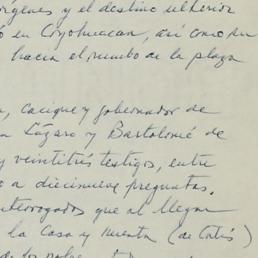 orígenes y el destino ulterior
ó en Coyohuacan, así como su
hacia el rumbo de la plaza
, cacique y gobernador de
Lázaro y Bartolomé de
y veintitrés testigos, entre
a diecinueve preguntas.
interrogados que al llegar
la Casa y huerta (de Cortés)